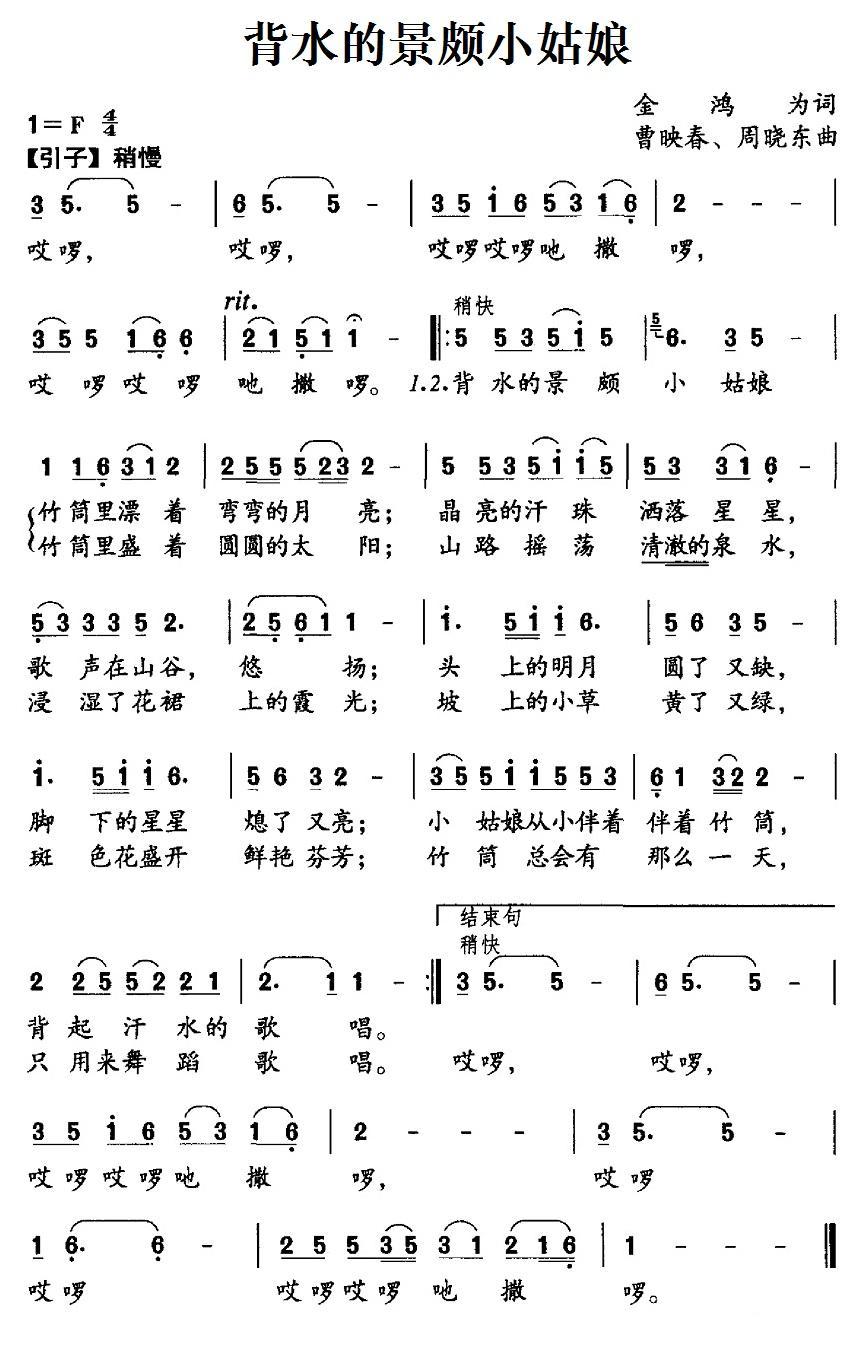 背水的景颇小姑娘
金 鸿 为词
1=F 4/4
曹映春、周晓东曲
【引子】稍慢
3 5. 5 - | 6 5. 5 - | 3 5 i 6 5 3 1 6 | 2 - - - |
哎啰, 哎啰, 哎啰哎啰吔 撒 啰,
rit. 稍快
3 5 5 1 6 6 | 2 1 5 1 1 - ‖: 5 5 3 5 i 5 | 5 6. 3 5 - |
哎 啰 哎 啰 吔 撒 啰。 1.2.背 水的景 颇 小 姑娘
1 1 6 3 1 2 | 2 5 5 5 2 3 2 - | 5 5 3 5 i i 5 | 5 3 3 1 6 - |
竹筒里漂 着 弯弯的月 亮; 晶 亮的汗 珠 洒落 星 星,
竹筒里盛 着 圆圆的太 阳; 山 路 摇 荡 清澈的泉 水,
5 3 3 3 5 2. | 2 5 6 1 1 - | i. 5 i i 6. | 5 6 3 5 - |
歌 声在山谷, 悠 扬; 头 上的明月 圆了 又缺,
浸 湿了花裙 上的霞 光; 坡 上的小草 黄了 又绿,
i. 5 i i 6. | 5 6 3 2 - | 3 5 5 i i 5 5 3 | 6 1 3 2 2 - |
脚 下的星星 熄了 又亮; 小 姑娘从小伴着 伴着 竹 筒,
斑 色花盛开 鲜艳 芬芳; 竹 筒 总会有 那么 一 天,
结束句
稍快
2 2 5 5 2 2 1 | 2. 1 1 - :‖ 3 5. 5 - | 6 5. 5 - |
背 起 汗 水的 歌 唱。
只 用来舞 蹈 歌 唱。 哎啰, 哎啰,
3 5 i 6 5 3 1 6 | 2 - - - | 3 5. 5 - |
哎啰哎啰吔 撒 啰, 哎啰
1 6. 6 - | 2 5 5 3 5 3 1 2 1 6 | 1 - - - ‖
哎啰 哎啰哎啰 吔 撒 啰。